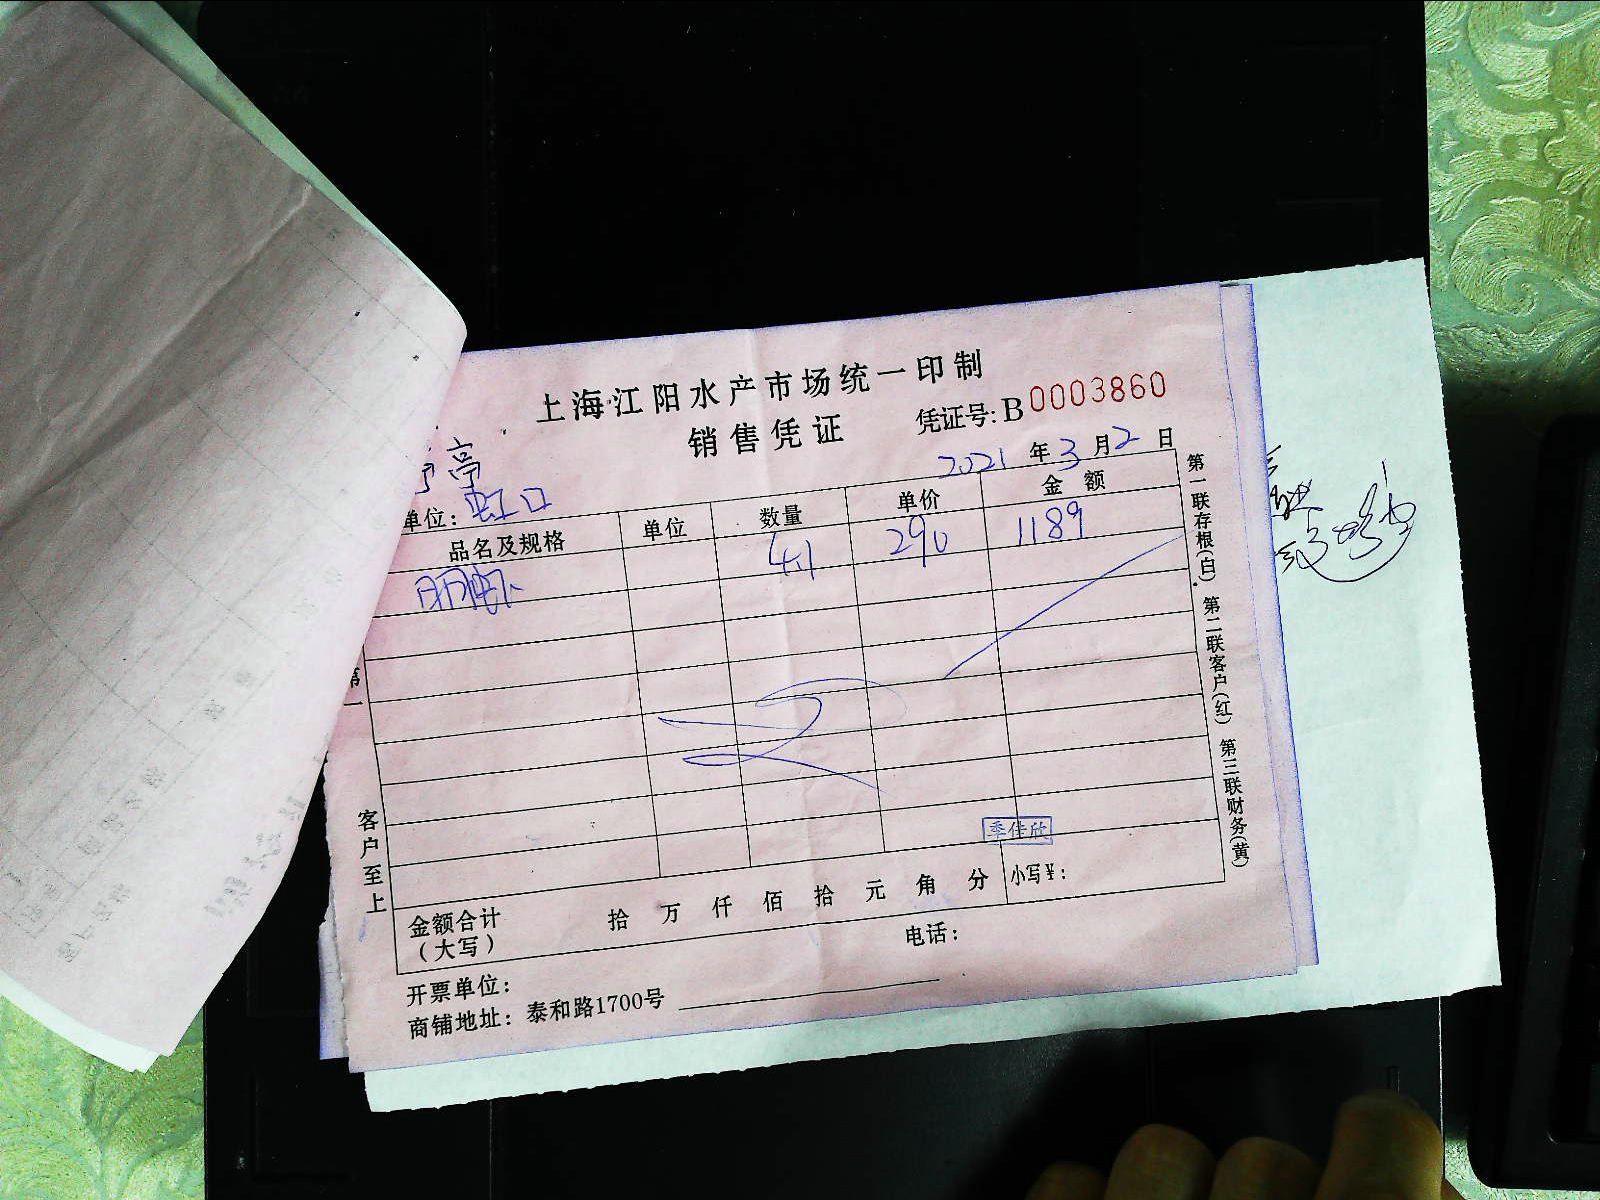 上海江阳水产市场统一印制
销售凭证 凭证号: B 0003860
2021 年 3 月 2 日
亭
单位: 虹口
品名及规格 单位 数量 单价 金额
明虾 4.1 290 1189
季佳欣
金额合计 (大写) 拾 万 仟 佰 拾 元 角 分 小写¥:
开票单位: 电话:
商铺地址: 泰和路1700号
第一联存根(白) 第二联客户(红) 第三联财务(黄)
第一
客户至上